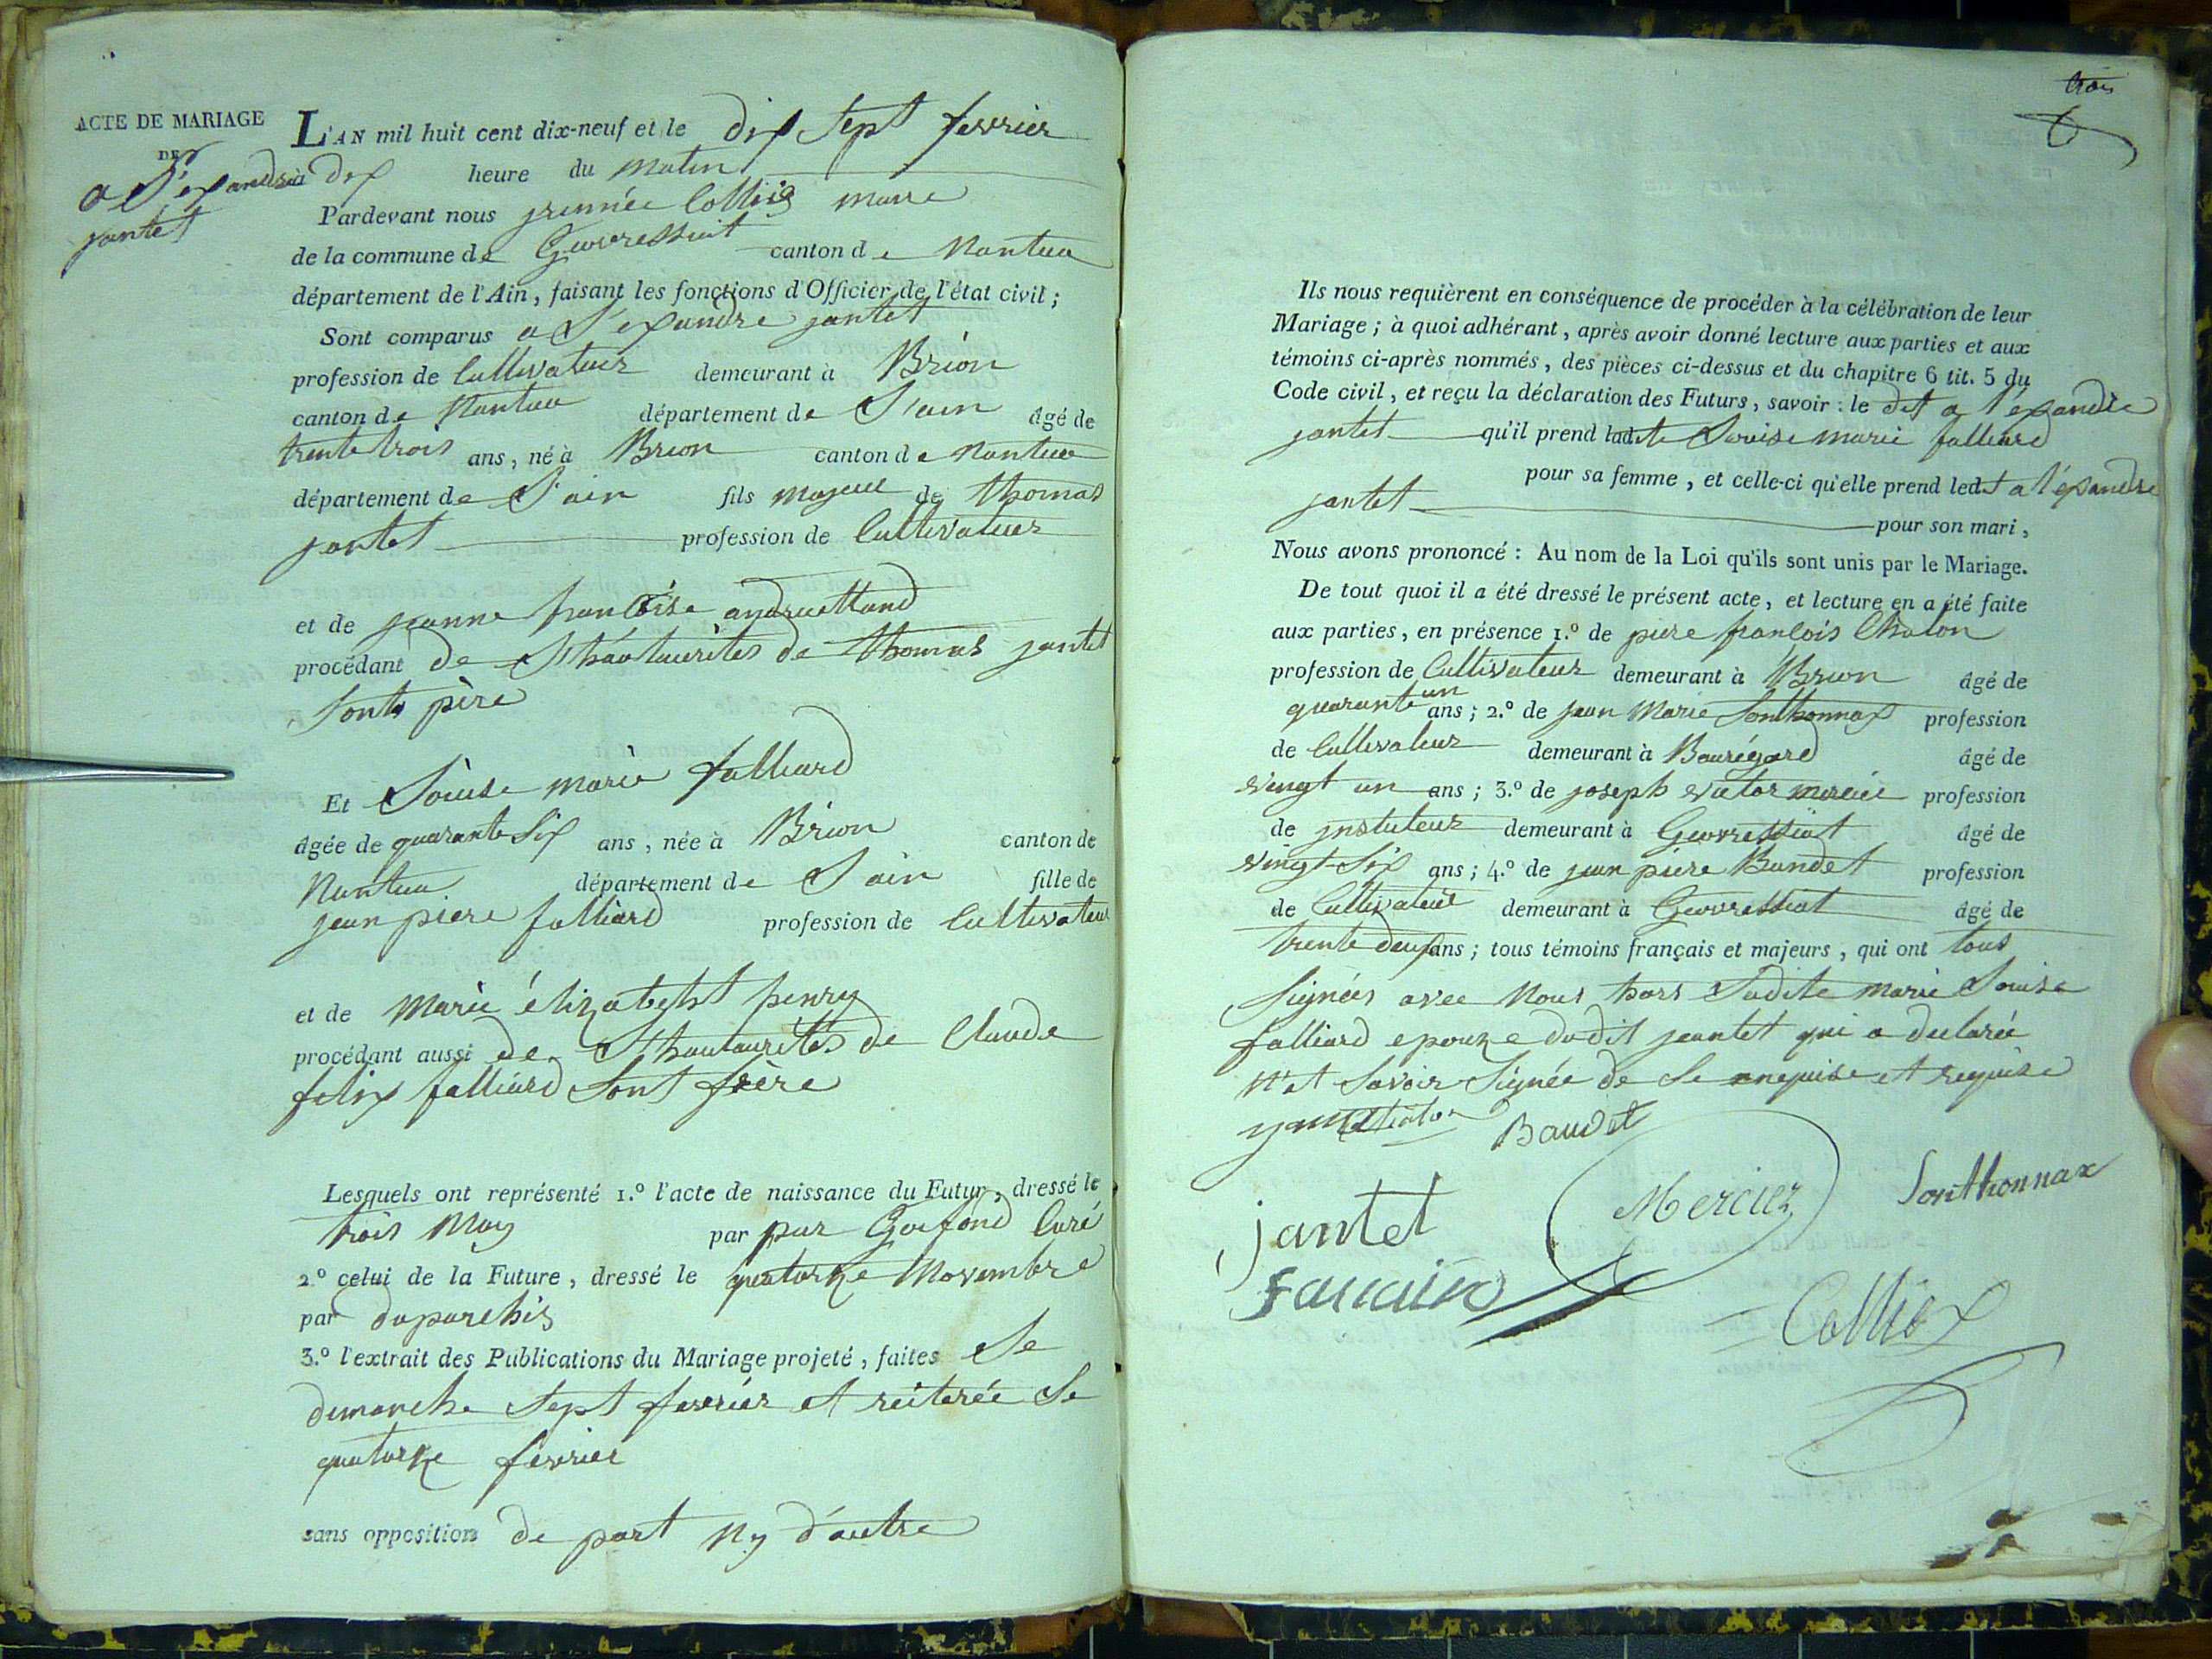 ACTE DE MARIAGE
DE
a L'exandre
jantet
L'AN mil huit cent dix-neuf et le dix sept fevrier
à dix heure du matin
Pardevant nous Collig maire
de la commune de Gevressiat canton de Nantua
département de l'Ain, faisant les fonctions d'Officier de l'état civil;
Sont comparus a L'exandre jantet
profession de Cultivateur demeurant à Brion
canton de Nantua département de L'ain âgé de
trente trois ans, né à Brion canton de Nantua
département de L'ain fils majeur de thomas
jantet profession de Cultivateur
et de jeanne francoise andruettand
procédant de L'hautaurités de thomas jantet
sont père
Et Louise marie falliard
âgée de quarante Six ans, née à Brion canton de
Nantua département de L'ain fille de
jean piere falliard profession de Cultivateur
et de Marie élizabeht penry
procédant aussi de L'hautaurités de Claude
felix falliard sont frère
Lesquels ont représenté 1.º l'acte de naissance du Futur, dressé le
trois May par par Goufond Curé
2.º celui de la Future, dressé le quatorze Novembre
par duparchis
3.º l'extrait des Publications du Mariage projeté, faites Le
dimanche Sept fevrier et reiterée Le
quatorze fevrier
sans opposition de part Ny d'autre
trois
Ils nous requièrent en conséquence de procéder à la célébration de leur
Mariage; à quoi adhérant, après avoir donné lecture aux parties et aux
témoins ci-après nommés, des pièces ci-dessus et du chapitre 6 tit. 5 du
Code civil, et reçu la déclaration des Futurs, savoir: le dit a l'éxandre
jantet qu'il prend ladite Louise marie falliard
pour sa femme, et celle-ci qu'elle prend ledt a l'éxandre
jantet pour son mari,
Nous avons prononcé: Au nom de la Loi qu'ils sont unis par le Mariage.
De tout quoi il a été dressé le présent acte, et lecture en a été faite
aux parties, en présence 1.º de piere francois Chaton
profession de Cultivateur demeurant à Brion âgé de
quarante un ans; 2.º de jean Marie Sonthonnax profession
de Cultivateur demeurant à Baurégard âgé de
vingt un ans; 3.º de joseph victor mercier profession
de jnstuteur demeurant à Gevressiat âgé de
vingt-Six ans; 4.º de jean piere Baudet profession
de Cultivateur demeurant à Gevressiat âgé de
trente deux ans; tous témoins français et majeurs, qui ont tous
Signées avec Nous hors Ladite marie Louise
falliard epouze dudit jeantet qui a declarée
N'et Savoir Signée de Ce enquise et requise
Baudet
jantet Mercier Sonthonnax
Colliex